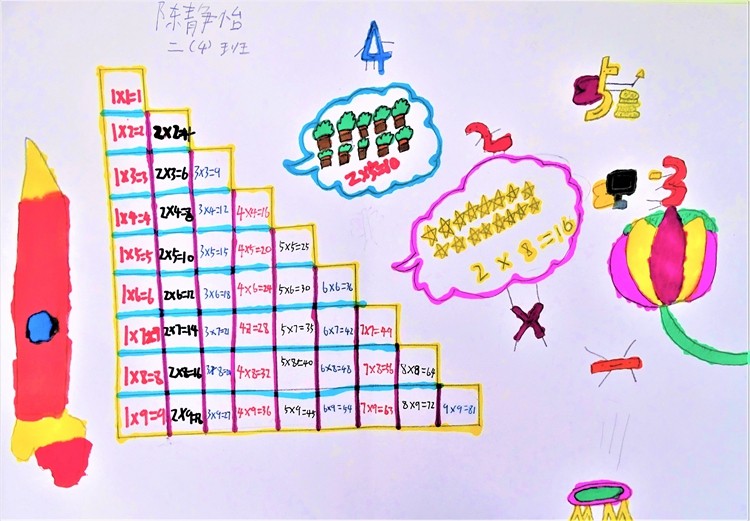 陈静怡
二(4)班
4
5
1×1=1
1×2=2 2×2=4
2×5=10
2
1×3=3 2×3=6 3×3=9
3
1×4=4 2×4=8 3×4=12 4×4=16
2×8=16
1×5=5 2×5=10 3×5=15 4×5=20 5×5=25
1×6=6 2×6=12 3×6=18 4×6=24 5×6=30 6×6=36
×
2×7=14 3×7=21 5×7=35 6×7=42 7×7=49
1×8=8 2×8=16 4×8=32 5×8=40 6×8=48 7×8=56 8×8=64
1×9=9 3×9=27 4×9=36 5×9=45 6×9=54 7×9=63 8×9=72 9×9=81